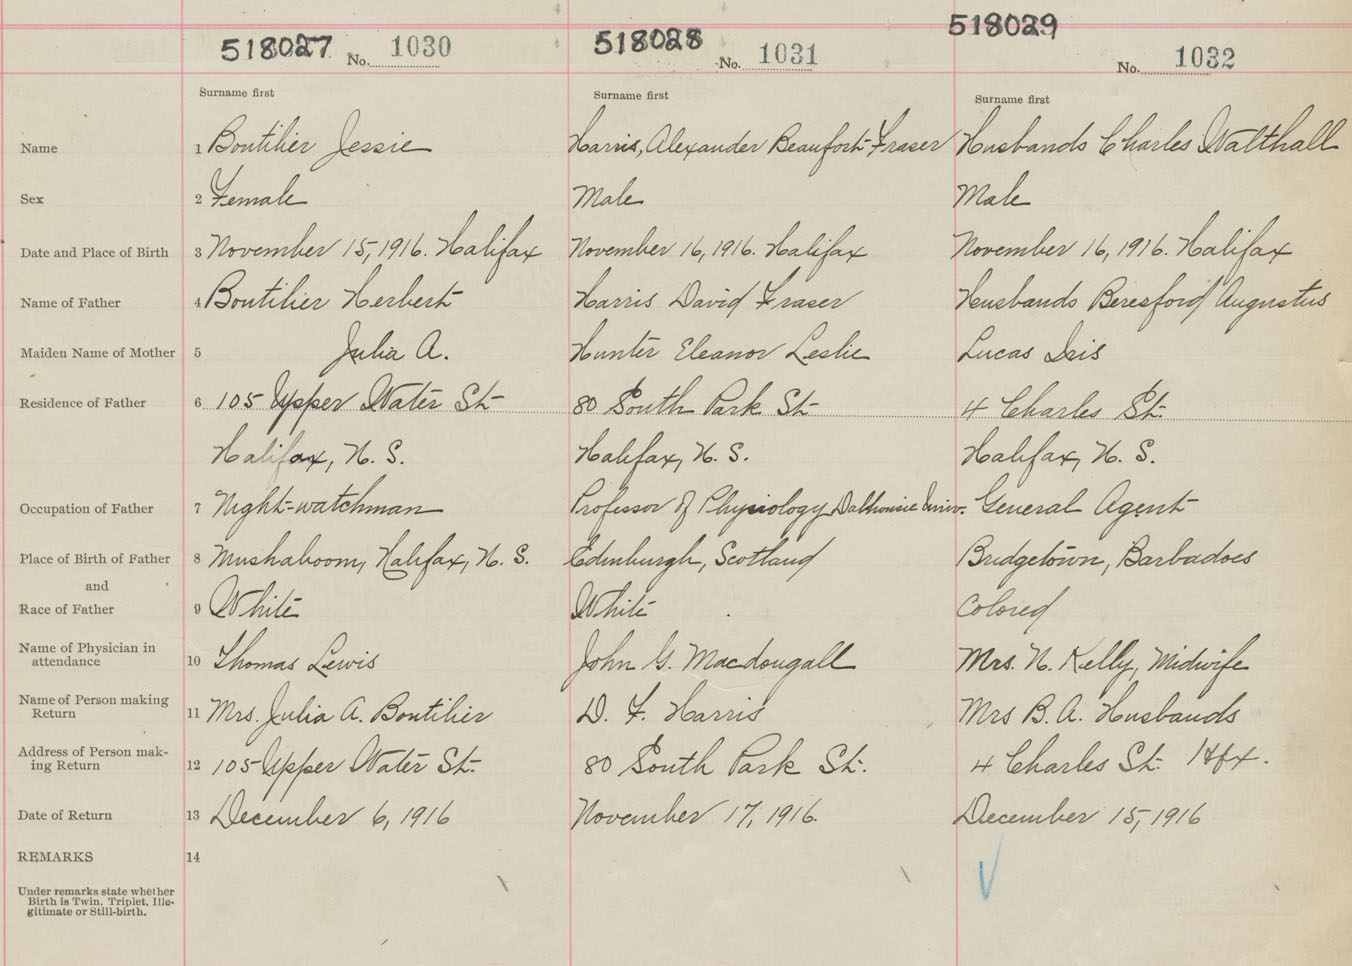 518027 No. 1030 518028 No. 1031 518029 No. 1032
Surname first Surname first Surname first
Name 1 Boutilier Jessie Harris, Alexander Beaufort-Fraser Husbands Charles Walthall
Sex 2 Female Male Male
Date and Place of Birth 3 November 15, 1916. Halifax November 16, 1916. Halifax November 16, 1916. Halifax
Name of Father 4 Boutilier Herbert Harris David Fraser Husbands Beresford Augustus
Maiden Name of Mother 5 Julia A. Hunter Eleanor Leslie Lucas Iris
Residence of Father 6 105 Upper Water St. 80 South Park St. 4 Charles St.
Halifax, N. S. Halifax, N. S. Halifax, N. S.
Occupation of Father 7 Night-watchman Professor of Physiology Dalhousie Univ. General Agent
Place of Birth of Father 8 Mushaboom, Halifax, N. S. Edinburgh, Scotland Bridgetown, Barbadoes
and
Race of Father 9 White White Colored
Name of Physician in
attendance 10 Thomas Lewis John G. Macdougall Mrs. N. Kelly, Midwife
Name of Person making
Return 11 Mrs. Julia A. Boutilier D. F. Harris Mrs B. A. Husbands
Address of Person mak-
ing Return 12 105 Upper Water St. 80 South Park St. 4 Charles St. Hfx.
Date of Return 13 December 6, 1916 November 17, 1916. December 15, 1916
REMARKS 14
Under remarks state whether
Birth is Twin, Triplet, Ille-
gitimate or Still-birth.